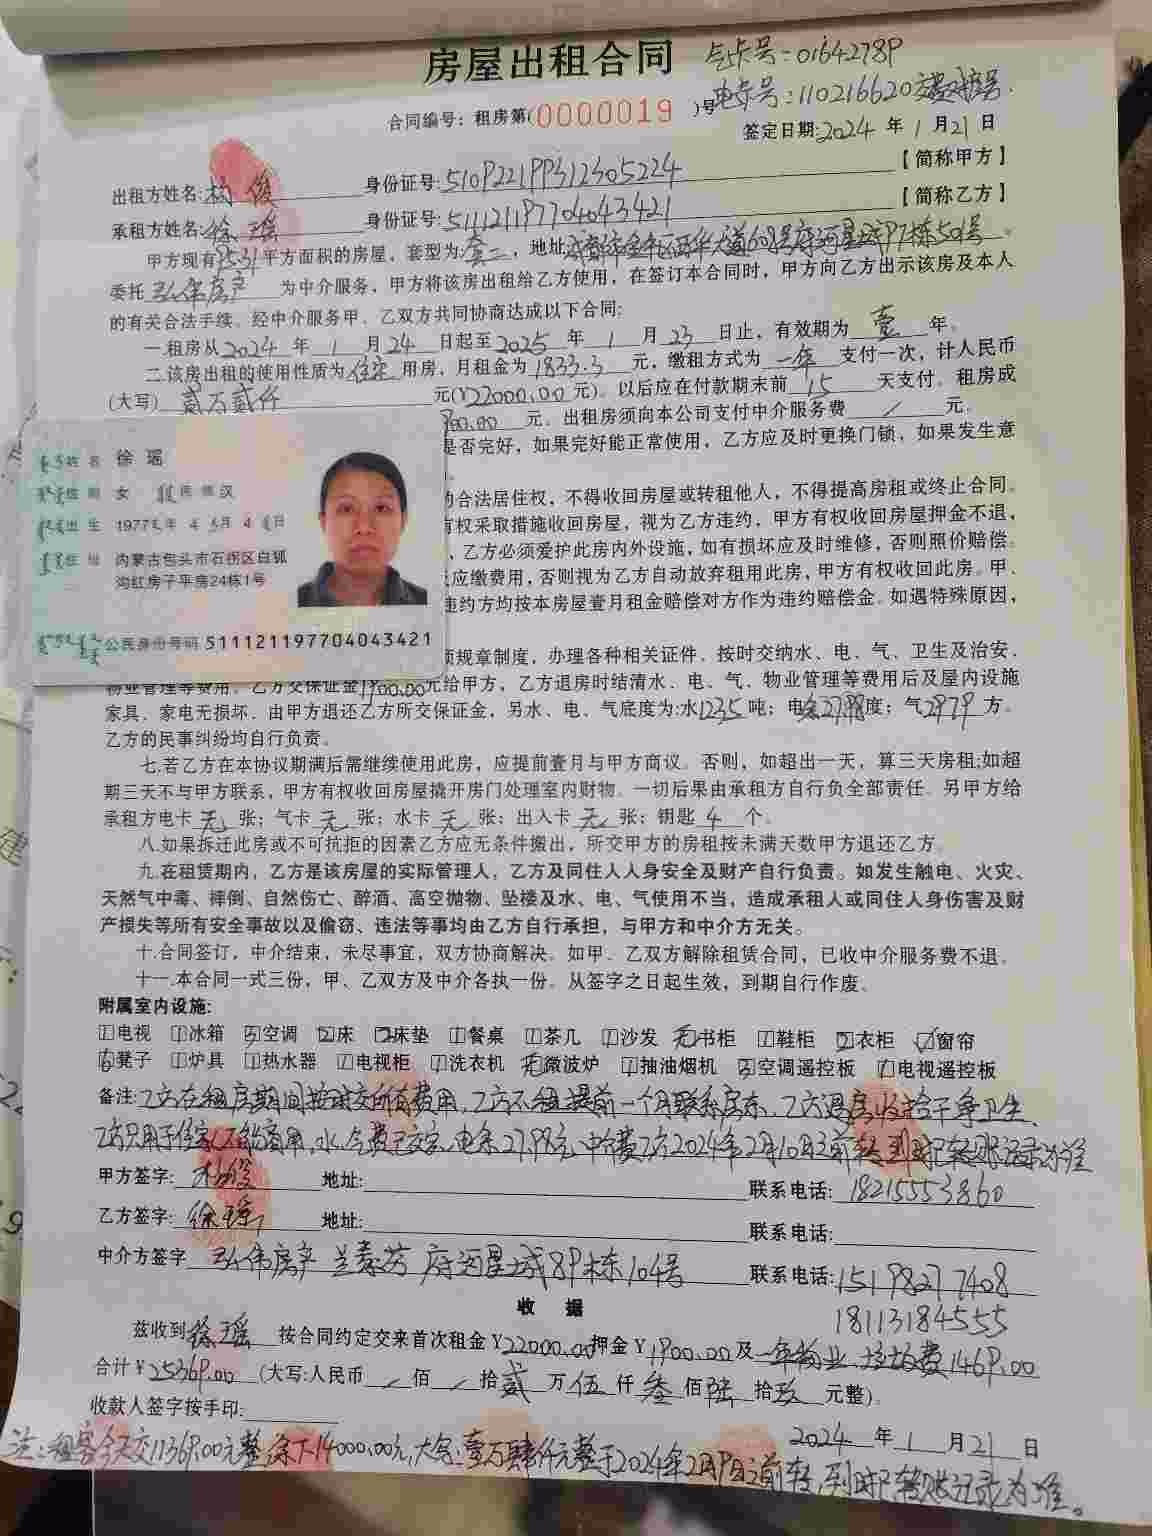 房屋出租合同
气卡号:01642789
电卡号:110216620
合同编号: 租房第(0000019)号
签定日期:2024 年 1 月 21 日
出租方姓名: 杨俊 身份证号: 510922199312305224 【简称甲方】
承租方姓名: 徐瑶 身份证号: 511121197704043421 【简称乙方】
甲方现有 平方面积的房屋，套型为 套二，地址 成都市金牛区西华大道608号府河星城97栋501号。
委托 弘伟房产 为中介服务，甲方将该房出租给乙方使用，在签订本合同时，甲方向乙方出示该房及本人
的有关合法手续。经中介服务甲、乙双方共同协商达成以下合同:
一.租房从 2024 年 1 月 24 日起至 2025 年 1 月 23 日止，有效期为 壹 年。
二.该房出租的使用性质为 住宅 用房，月租金为 1833.3 元，缴租方式为 一年 支付一次，计人民币
(大写) 贰万贰仟 元(¥22000.00元)。以后应在付款期末前 15 天支付。租房成
900.00 元。出租房须向本公司支付中介服务费 / 元。
是否完好，如果完好能正常使用，乙方应及时更换门锁，如果发生意
的合法居住权，不得收回房屋或转租他人，不得提高房租或终止合同。
有权采取措施收回房屋，视为乙方违约，甲方有权收回房屋押金不退，
，乙方必须爱护此房内外设施，如有损坏应及时维修，否则照价赔偿。
应缴费用，否则视为乙方自动放弃租用此房，甲方有权收回此房。甲、
违约方均按本房屋壹月租金赔偿对方作为违约赔偿金。如遇特殊原因，
姓名 徐瑶
性别 女 民族 汉
出生 1977 年 4 月 4 日
住址 内蒙古包头市石拐区白狐
沟红房子平房24栋1号
公民身份号码 511121197704043421
项规章制度，办理各种相关证件、按时交纳水、电、气、卫生及治安、
物业管理等费用。乙方交保证金1900.00元给甲方，乙方退房时结清水、电、气、物业管理等费用后及屋内设施
家具、家电无损坏、由甲方退还乙方所交保证金，另水、电、气底度为:水1235吨；电余27.98度；气2979方。
乙方的民事纠纷均自行负责。
七.若乙方在本协议期满后需继续使用此房，应提前壹月与甲方商议。否则，如超出一天，算三天房租;如超
期三天不与甲方联系，甲方有权收回房屋撬开房门处理室内财物。一切后果由承租方自行负全部责任。另甲方给
承租方电卡 无 张；气卡 无 张；水卡 无 张；出入卡 无 张；钥匙 4 个。
八.如果拆迁此房或不可抗拒的因素乙方应无条件搬出，所交甲方的房租按未满天数甲方退还乙方。
九.在租赁期内，乙方是该房屋的实际管理人，乙方及同住人人身安全及财产自行负责。如发生触电、火灾、
天然气中毒、摔倒、自然伤亡、醉酒、高空抛物、坠楼及水、电、气使用不当，造成承租人或同住人身伤害及财
产损失等所有安全事故以及偷窃、违法等事均由乙方自行承担，与甲方和中介方无关。
十.合同签订，中介结束，未尽事宜，双方协商解决。如甲、乙双方解除租赁合同，已收中介服务费不退。
十一.本合同一式三份，甲、乙双方及中介各执一份。从签字之日起生效，到期自行作废。
附属室内设施:
电视 冰箱 空调 床 床垫 餐桌 茶几 沙发 书柜 鞋柜 衣柜 窗帘
凳子 炉具 热水器 电视柜 洗衣机 微波炉 抽油烟机 空调遥控板 电视遥控板
备注:乙方在租房期间按时交所有费用，乙方不租提前一个月联系房东，乙方退房收拾干净卫生、
乙方只用于住家，不能商用，水、气费已交完，电余27.98元，中介费乙方2024年2月10日之前转到时已转账记录为准
甲方签字: 杨俊 地址: 联系电话: 18215553860
乙方签字: 徐瑶 地址: 联系电话:
中介方签字 弘伟房产 兰素芳 府河星城89栋104号 联系电话: 15198277408
18113184555
收 据
兹收到 徐瑶 按合同约定交来首次租金¥22000.00押金¥1900.00及一年物业、垃圾费1469.00
合计¥25369.00 (大写:人民币 / 佰 / 拾 贰 万 伍 仟 叁 佰 陆 拾 玖 元整)。
收款人签字按手印:
2024 年 1 月 21 日
注:租客今天交11369.00元整，余下14000.00元，大写:壹万肆仟元整于2024年2月9日之前转，到时已转账记录为准。